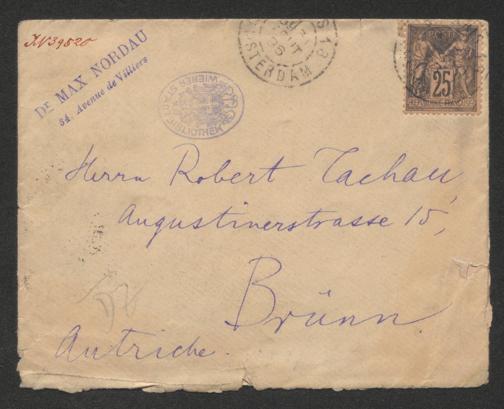 IN 39520
Dr MAX NORDAU
34, Avenue de Villiers
AMSTERDAM
WIENER STADTBIBLIOTHEK
POSTE
25
RÉPUBLIQUE FRANÇAISE
Herrn Robert Tachau,
Augustinerstrasse 15,
Brünn.
Autriche.